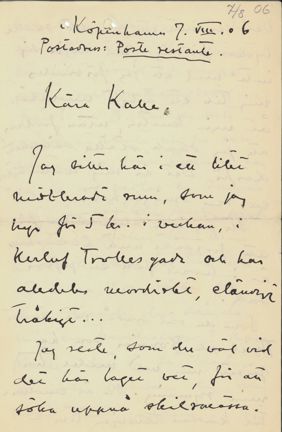 7/8 06
Köpenhamn 7. VIII. 06
Postadress: Poste restante.
Kära Kaka.
Jag sitter här i ett litet
möbleradt rum, som jag
hyr för 5 kr. i veckan, i
Herluf Trolles gade och har
alldeles mordiskt, eländigt
tråkigt...
Jag reste, som du väl vid
det här laget vet, för att
söka uppnå skilsmässa.